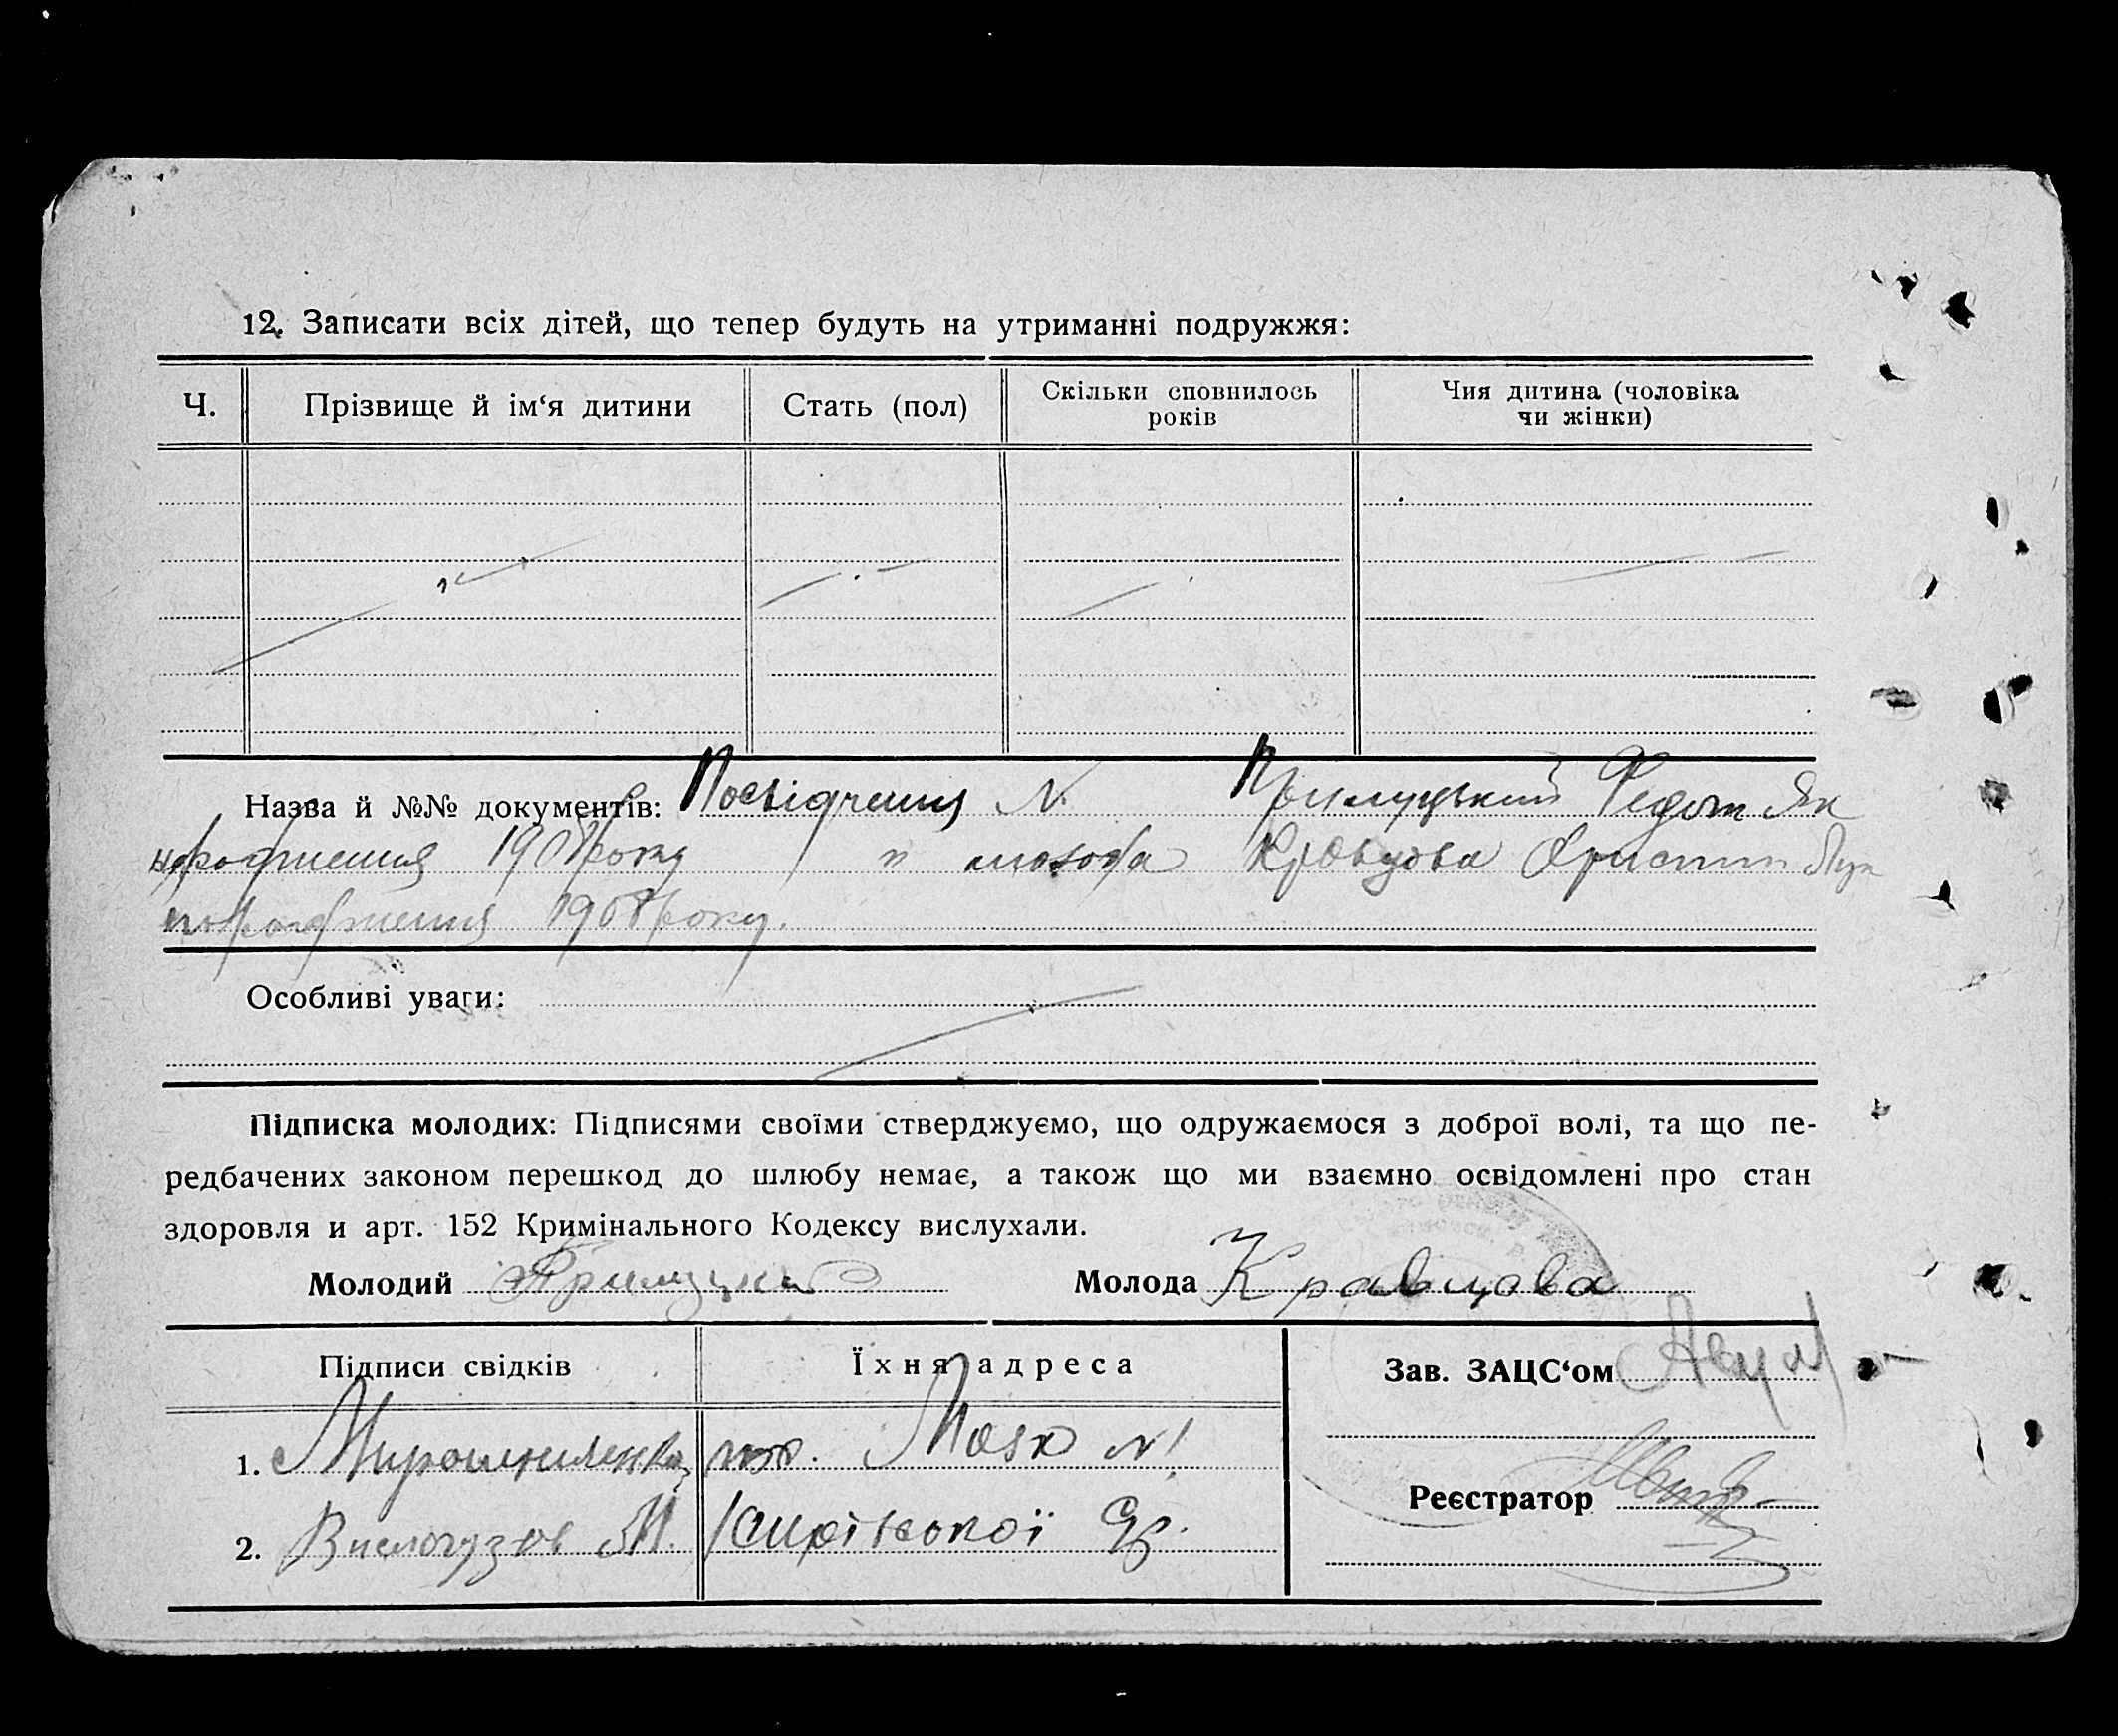 12. Записати всіх дітей, що тепер будуть на утриманні подружжя:
Ч. Прізвище й ім‘я дитини Стать (пол) Скільки сповнилось років Чия дитина (чоловіка чи жінки)
Назва й №№ документів: Посвідчення N. Прилуцький Федот Як
народження 1908 року " молода Кравцова Христин Лук
народження 1908 року.
Особливі уваги:
Підписка молодих: Підписями своїми стверджуємо, що одружаємося з доброї волі, та що пе-
редбачених законом перешкод до шлюбу немає, а також що ми взаємно освідомлені про стан
здоровля и арт. 152 Кримінального Кодексу вислухали.
Молодий Прилуцки Молода Кравцова
Підписи свідків Їхня адреса Зав. ЗАЦС‘ом
1. Мирошниченко N1
Реєстратор
2. М.